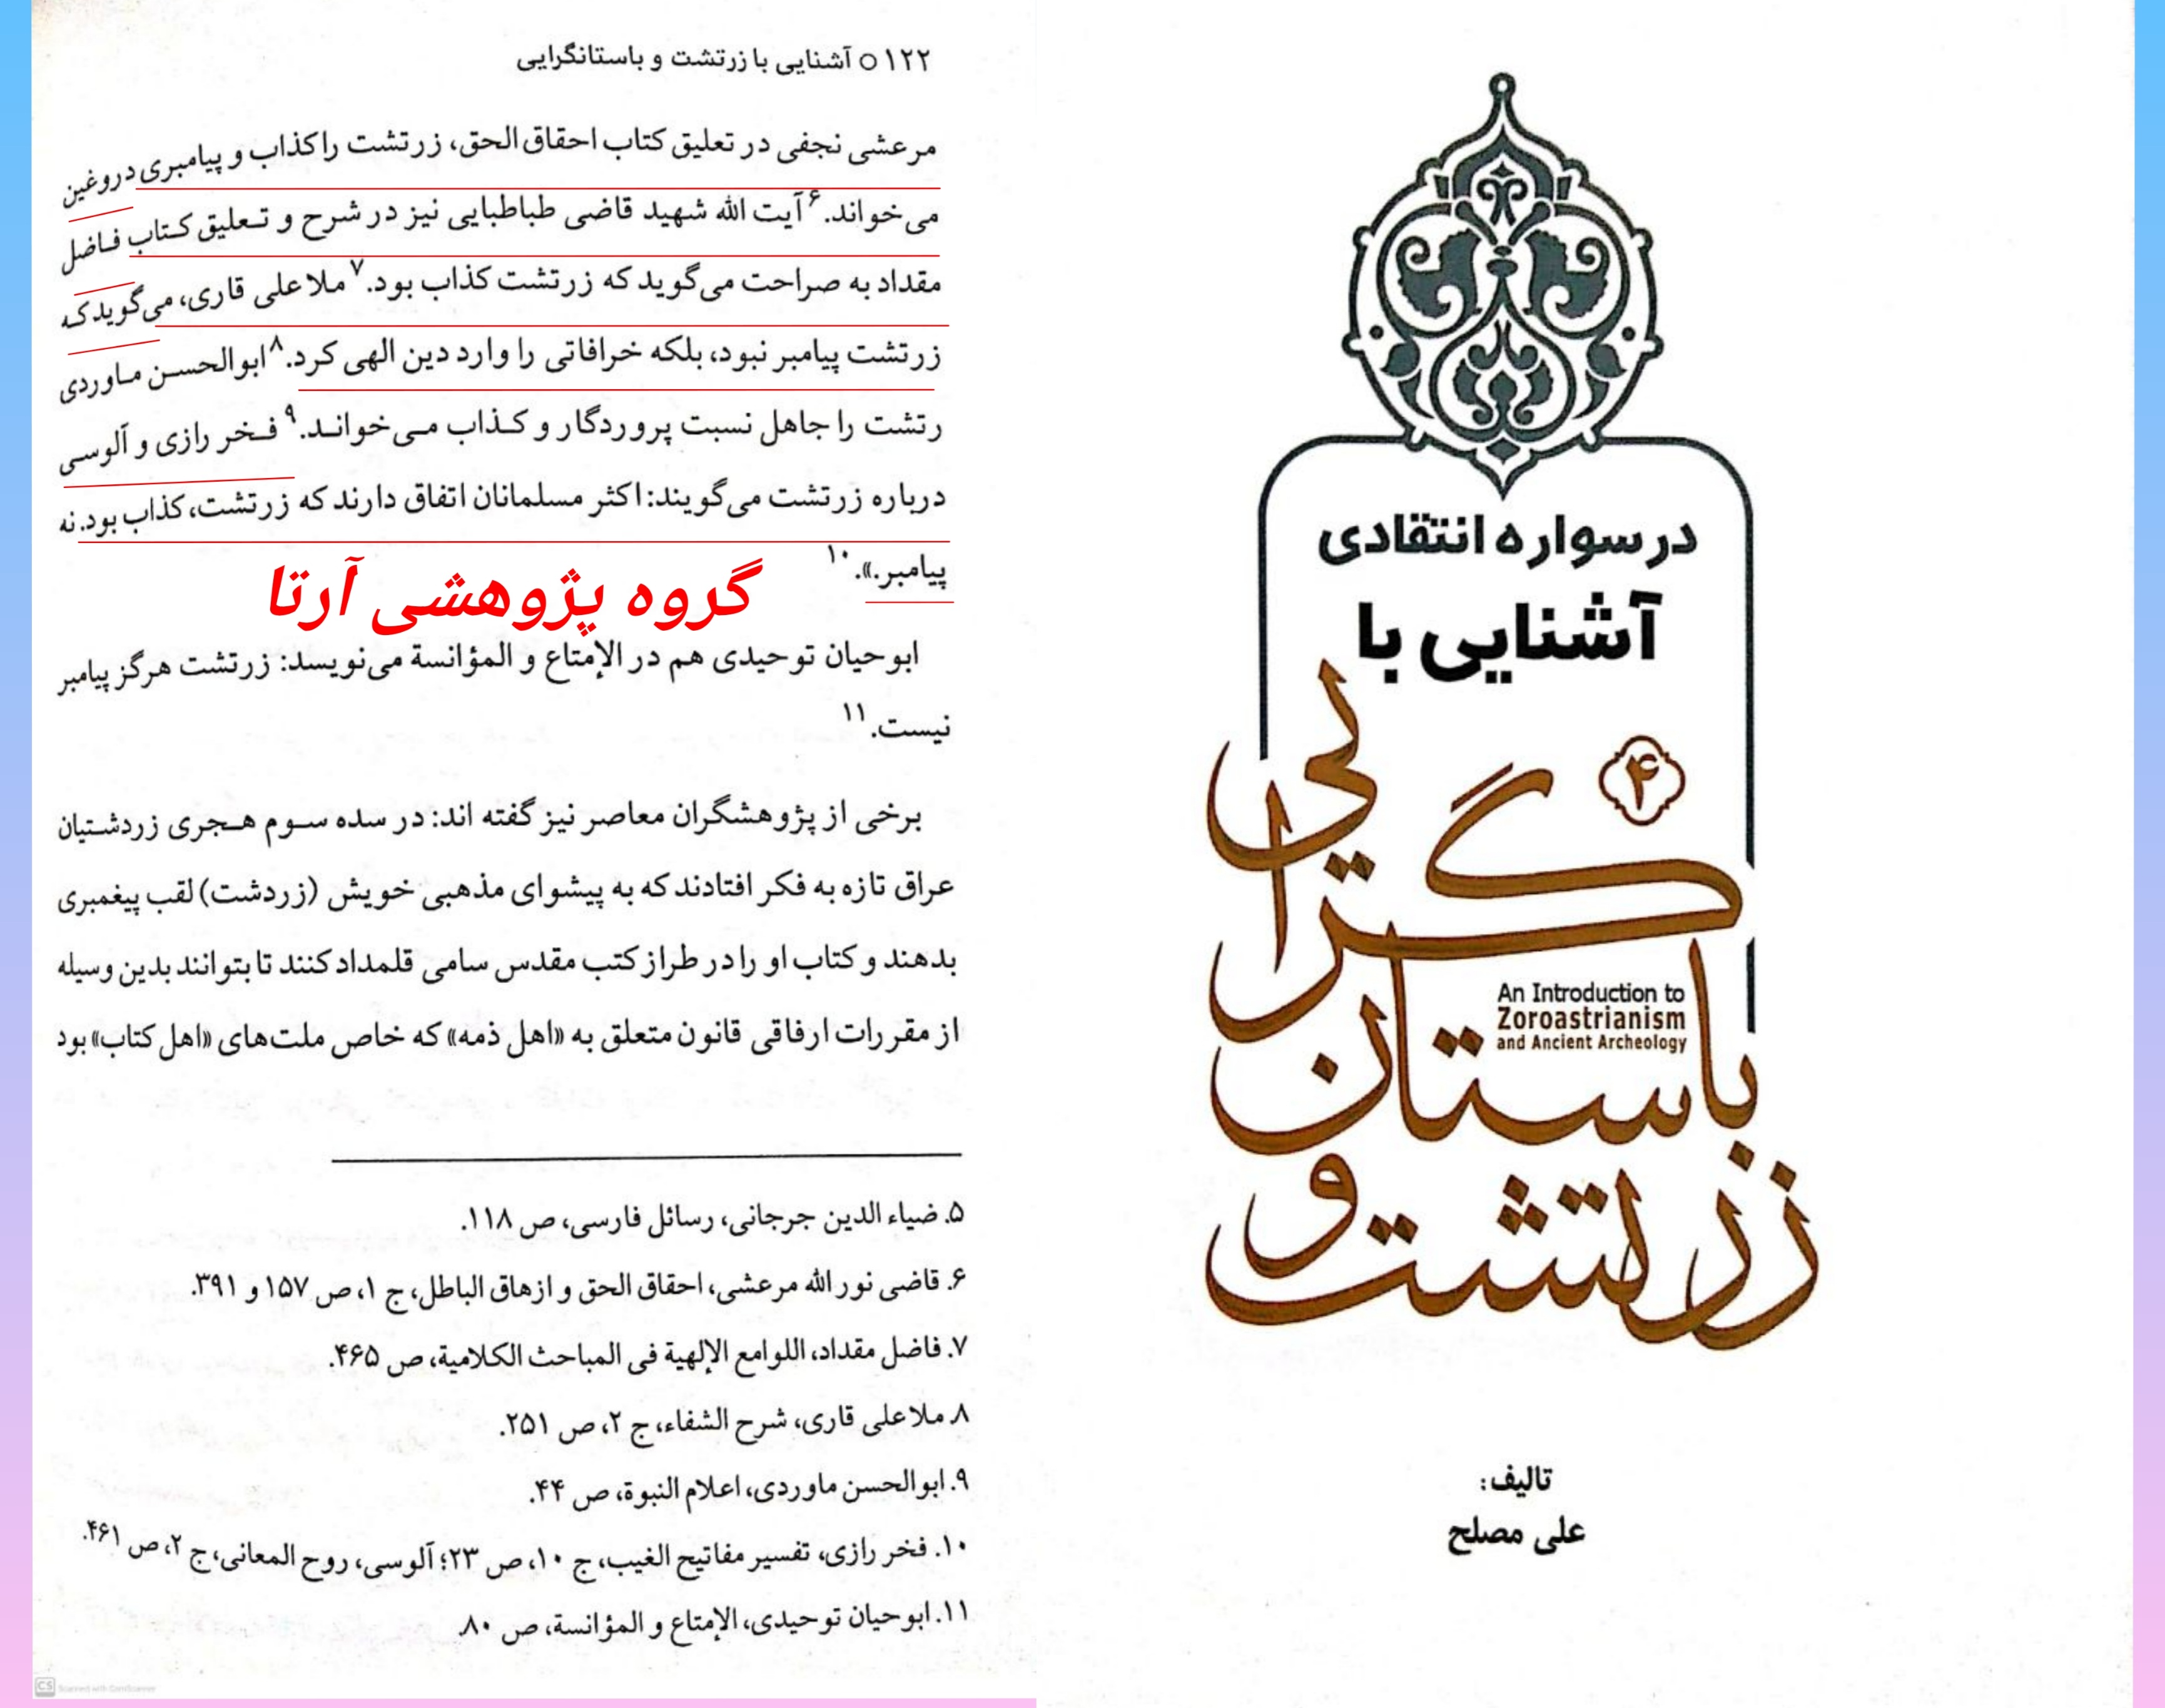 ۱۲۲ ○ آشنایی با زرتشت و باستانگرایی
مرعشی نجفی در تعلیق کتاب احقاق الحق، زرتشت را کذاب و پیامبری دروغین
می‌خواند.۶ آیت الله شهید قاضی طباطبایی نیز در شرح و تعلیق کتاب فاضل
مقداد به صراحت می‌گوید که زرتشت کذاب بود.۷ ملاعلی قاری، می‌گوید که
زرتشت پیامبر نبود، بلکه خرافاتی را وارد دین الهی کرد.۸ ابوالحسن ماوردی
رتشت را جاهل نسبت پروردگار و کذاب می‌خواند.۹ فخر رازی و آلوسی
درباره زرتشت می‌گویند: اکثر مسلمانان اتفاق دارند که زرتشت، کذاب بود. نه
پیامبر.».۱۰
گروه پژوهشی آرتا
ابوحیان توحیدی هم در الإمتاع و المؤانسة می‌نویسد: زرتشت هرگز پیامبر
نیست.۱۱
برخی از پژوهشگران معاصر نیز گفته اند: در سده سوم هجری زردشتیان
عراق تازه به فکر افتادند که به پیشوای مذهبی خویش (زردشت) لقب پیغمبری
بدهند و کتاب او را در طراز کتب مقدس سامی قلمداد کنند تا بتوانند بدین وسیله
از مقررات ارفاقی قانون متعلق به «اهل ذمه» که خاص ملت‌های «اهل کتاب» بود
۵. ضیاء الدین جرجانی، رسائل فارسی، ص ۱۱۸.
۶. قاضی نور الله مرعشی، احقاق الحق و ازهاق الباطل، ج ۱، ص ۱۵۷ و ۳۹۱.
۷. فاضل مقداد، اللوامع الإلهیة فی المباحث الکلامیة، ص ۴۶۵.
۸. ملاعلی قاری، شرح الشفاء، ج ۲، ص ۲۵۱.
۹. ابوالحسن ماوردی، اعلام النبوة، ص ۴۴.
۱۰. فخر رازی، تفسیر مفاتیح الغیب، ج ۱۰، ص ۲۳؛ آلوسی، روح المعانی، ج ۲، ص ۴۶۱.
۱۱. ابوحیان توحیدی، الإمتاع و المؤانسة، ص ۸۰.
CS Scanned with CamScanner
درسواره انتقادی
آشنایی با
۴
زرتشت و
باستان
گرایی
An Introduction to
Zoroastrianism
and Ancient Archeology
تالیف:
علی مصلح